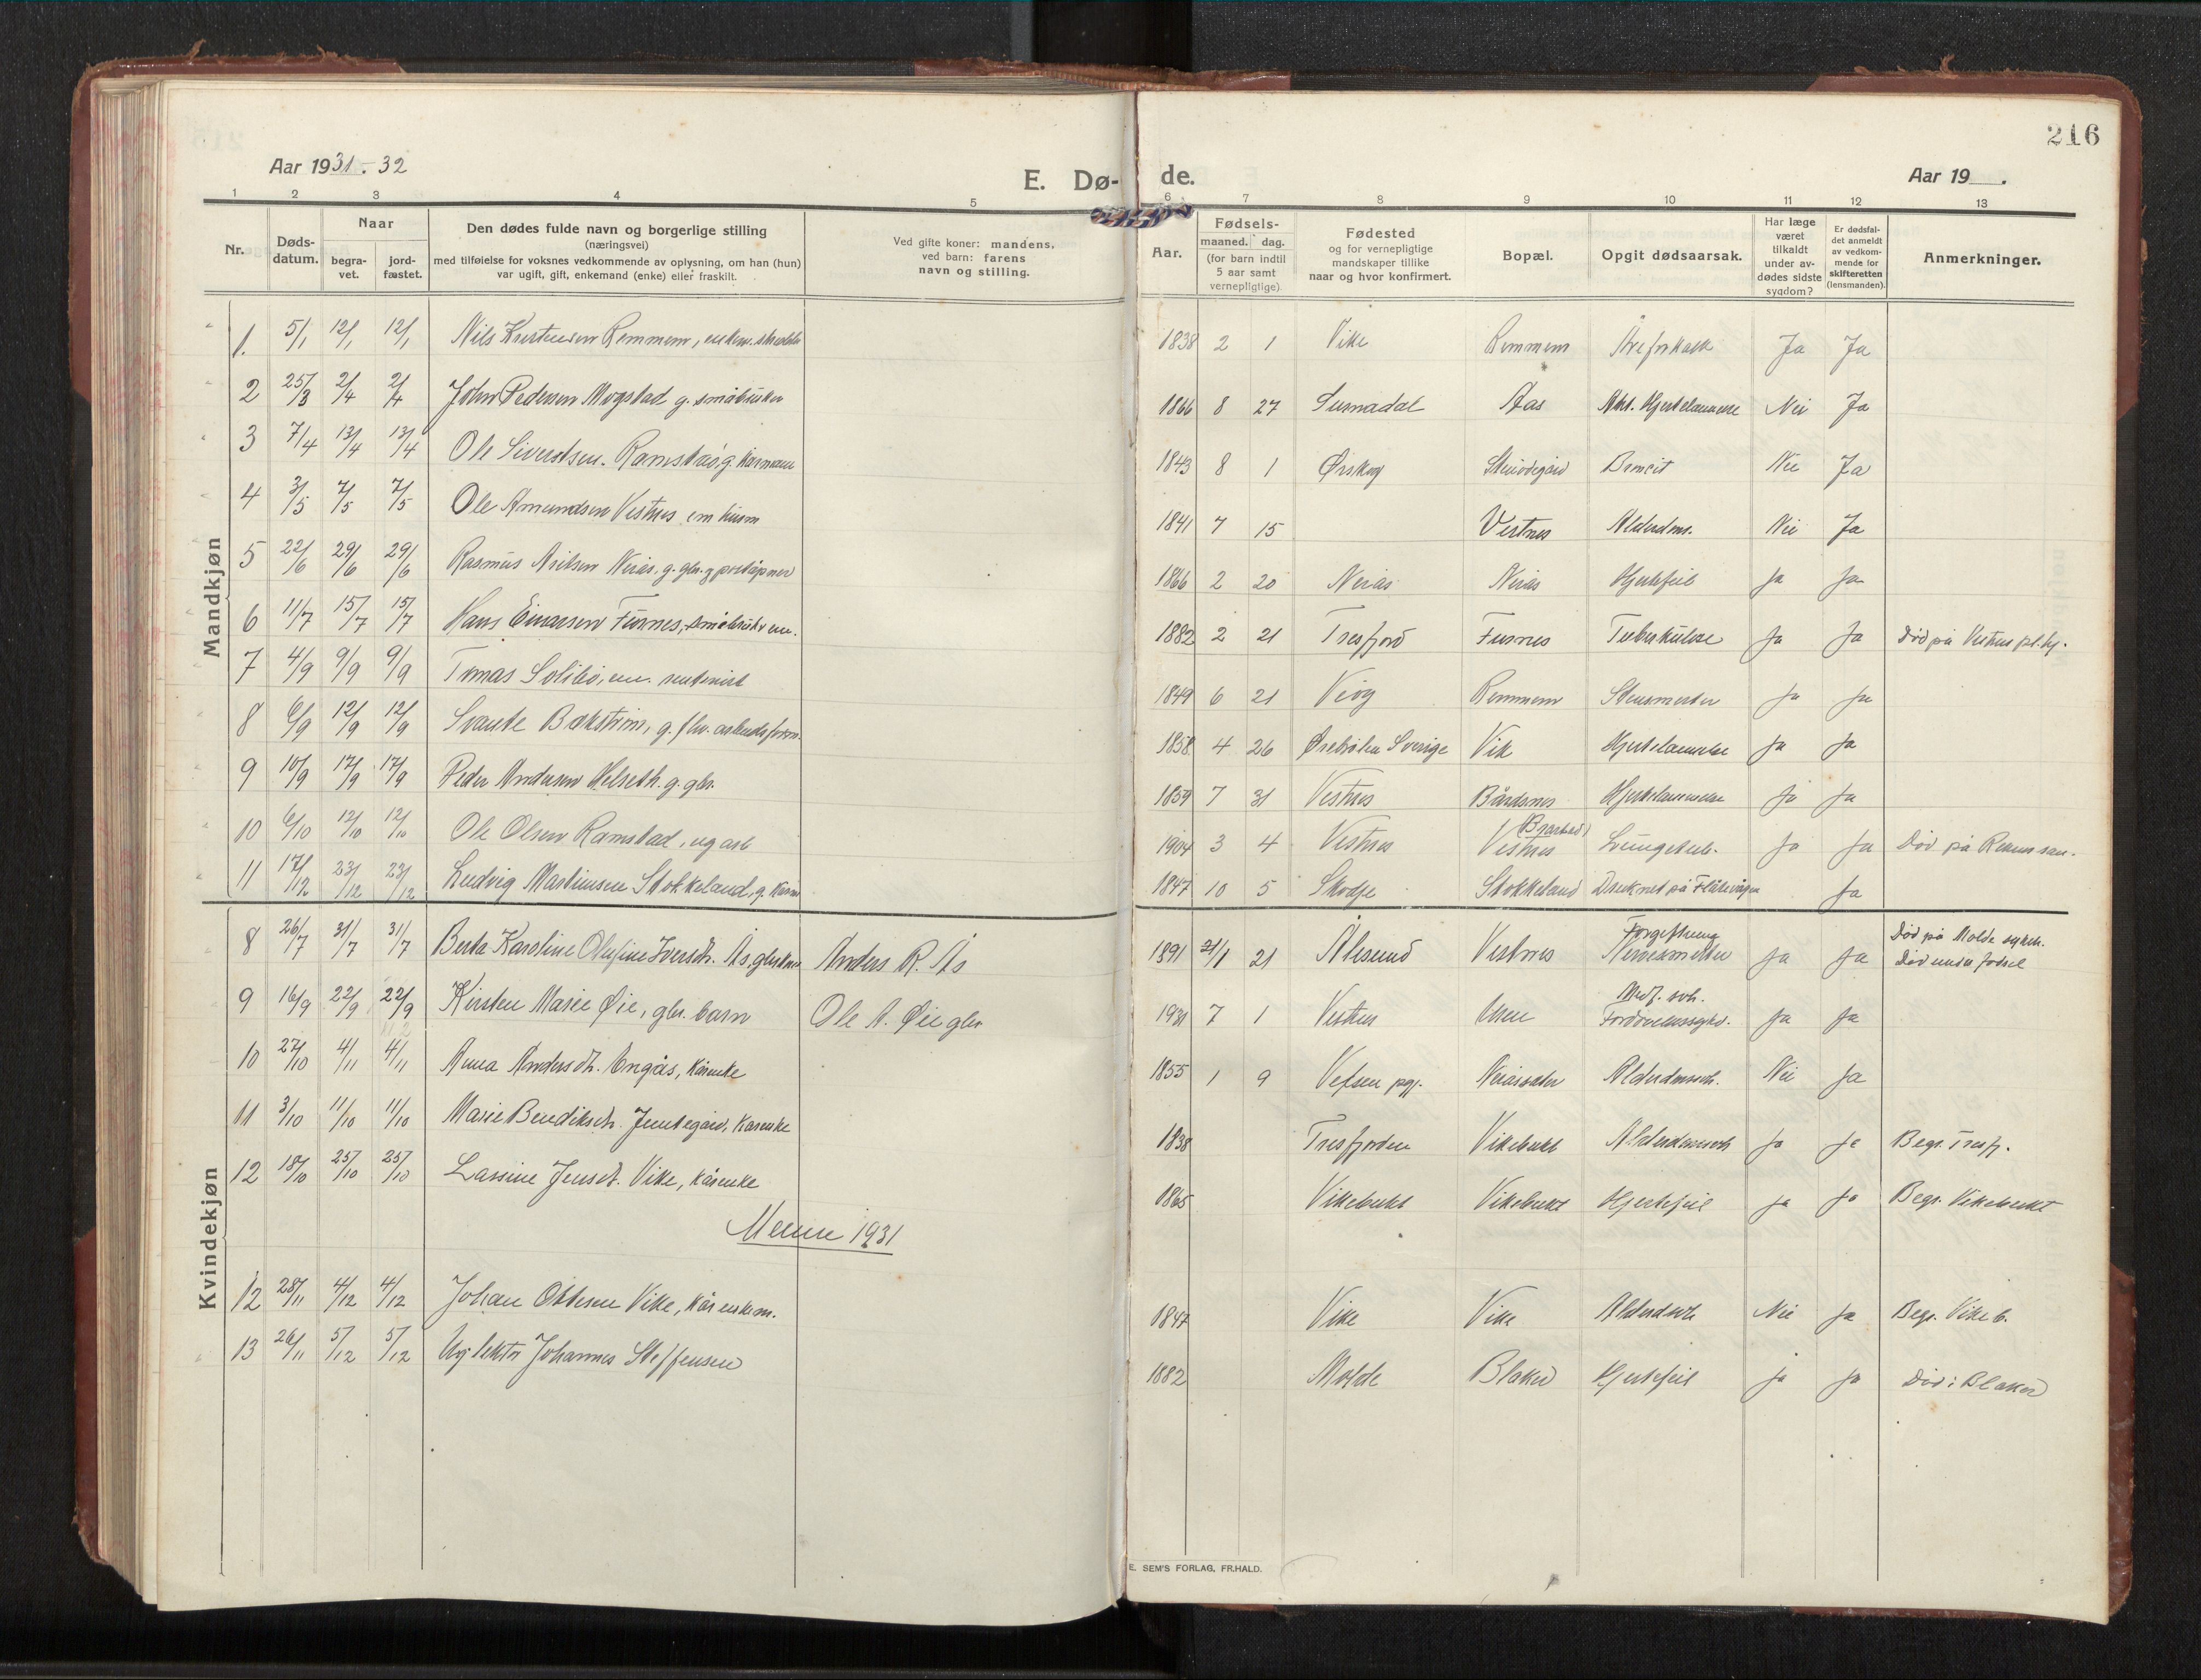 216
Aar 1931.-32
E. Dø-
de.
Aar 19 .
1 2 3 4 5 6 7 8 9 10 11 12 13
Nr.
Døds-
datum.
Naar
begra-
vet.
jord-
fæstet.
Den dødes fulde navn og borgerlige stilling
(næringsvei)
med tilføielse for voksnes vedkommende av oplysning, om han (hun)
var ugift, gift, enkemand (enke) eller fraskilt.
Ved gifte koner: mandens,
ved barn: farens
navn og stilling.
Aar.
Fødsels-
maaned. dag.
(for barn indtil
5 aar samt
vernepligtige)
Fødested
og for vernepligtige
mandskaper tillike
naar og hvor konfirmert.
Bopæl.
Opgit dødsaarsak.
Har læge
været
tilkaldt
under av-
dødes sidste
sygdom?
Er dødsfal-
det anmeldt
av vedkom-
mende for
skifteretten
(lensmanden).
Anmerkninger.
Mandkjøn
1. 5/1 12/1 12/1 Nils Remmem, 1838 2 1 Vike Remmem Ja Ja
2 25/3 2/4 2/4 John Pedersen Mogstad g. småbruker 1866 8 27 Surnadal Aas Nei Ja
3 7/4 13/4 13/4 Ole Sivertsen. g. 1843 8 1 Ørskog Nei Ja
4 3/5 7/5 7/5 Ole Amundsen Vestnes 1841 7 15 Vestnes Nei Ja
5 22/6 29/6 29/6 Rasmus Nerås. g. gbr. 1866 2 20 Nerås Nerås Hjertefeil Ja Ja
6 11/7 15/7 15/7 Hans Einarsen Furnes, 1882 2 21 Tresfjord Furnes Tuberkulose Ja Ja Død på Vestnes pl.hj.
7 4/9 9/9 9/9 Tomas em. 1849 6 21 Veøy Remmem Ja Ja
8 6/9 12/9 12/9 Svante Bækström, g. 1858 4 26 Sverige Vik Hjertelammelse Ja Ja
9 10/9 17/9 17/9 Peder Andersen Helseth. g. gbr. 1859 7 31 Vestnes Bårdsnes Hjertelammelse Ja Ja
10 6/10 12/10 12/10 Ole Olsen Ramstad, ug arb 1904 3 4 Vestnes Vestnes Lungetub. Ja Ja Død på san.
11 17/12 23/12 23/12 Ludvig Martinsen Stokkeland, g. 1847 10 5 Skodje Stokkeland Druknet på Ja
Kvindekjøn
8 26/7 31/7 31/7 Berta Karoline Olufine Iversdt. Ås, Anders R. Ås 1891 21 Ålesund Vestnes Ja Ja Død på Molde sykeh.
Død under fødsel
9 16/9 22/9 22/9 Kirsten Marie Øie, gbr. barn Ole A. Øie gbr 1931 7 1 Vestnes Medf. svk. Ja Ja
10 27/10 4/11 4/11 Anna Andersdt. Engås, kårenke 1855 1 9 Vefsen pgj. Nei Ja
11 3/10 11/10 11/10 Marie Bendiksdt. kårenke 1838 Tresfjorden Vikebukt Ja Ja Begr. Tresfj.
12 18/10 25/10 25/10 Lassine Jensdt. Vike, kårenke 1865 Vikebukt Vikebukt Hjertefeil Ja Ja Begr. Vikebukt
Menn 1931
12 28/11 4/12 4/12 Johan Ottesen Vike, kårenkem. 1847 Vike Vike Nei Ja Begr. Vikeb.
13 26/11 5/12 5/12 Ug. lektor Johannes Steffensen 1882 Molde Blaker Hjertefeil Ja Ja Død i Blaker
E. SEM'S FORLAG, FR.HALD.